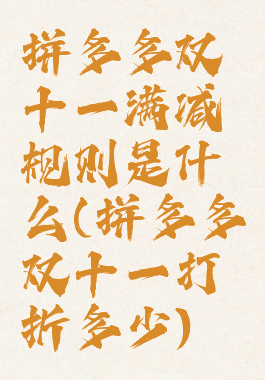 拼多多双
十一满减
规则是什
么(拼多多
双十一打
折多少)